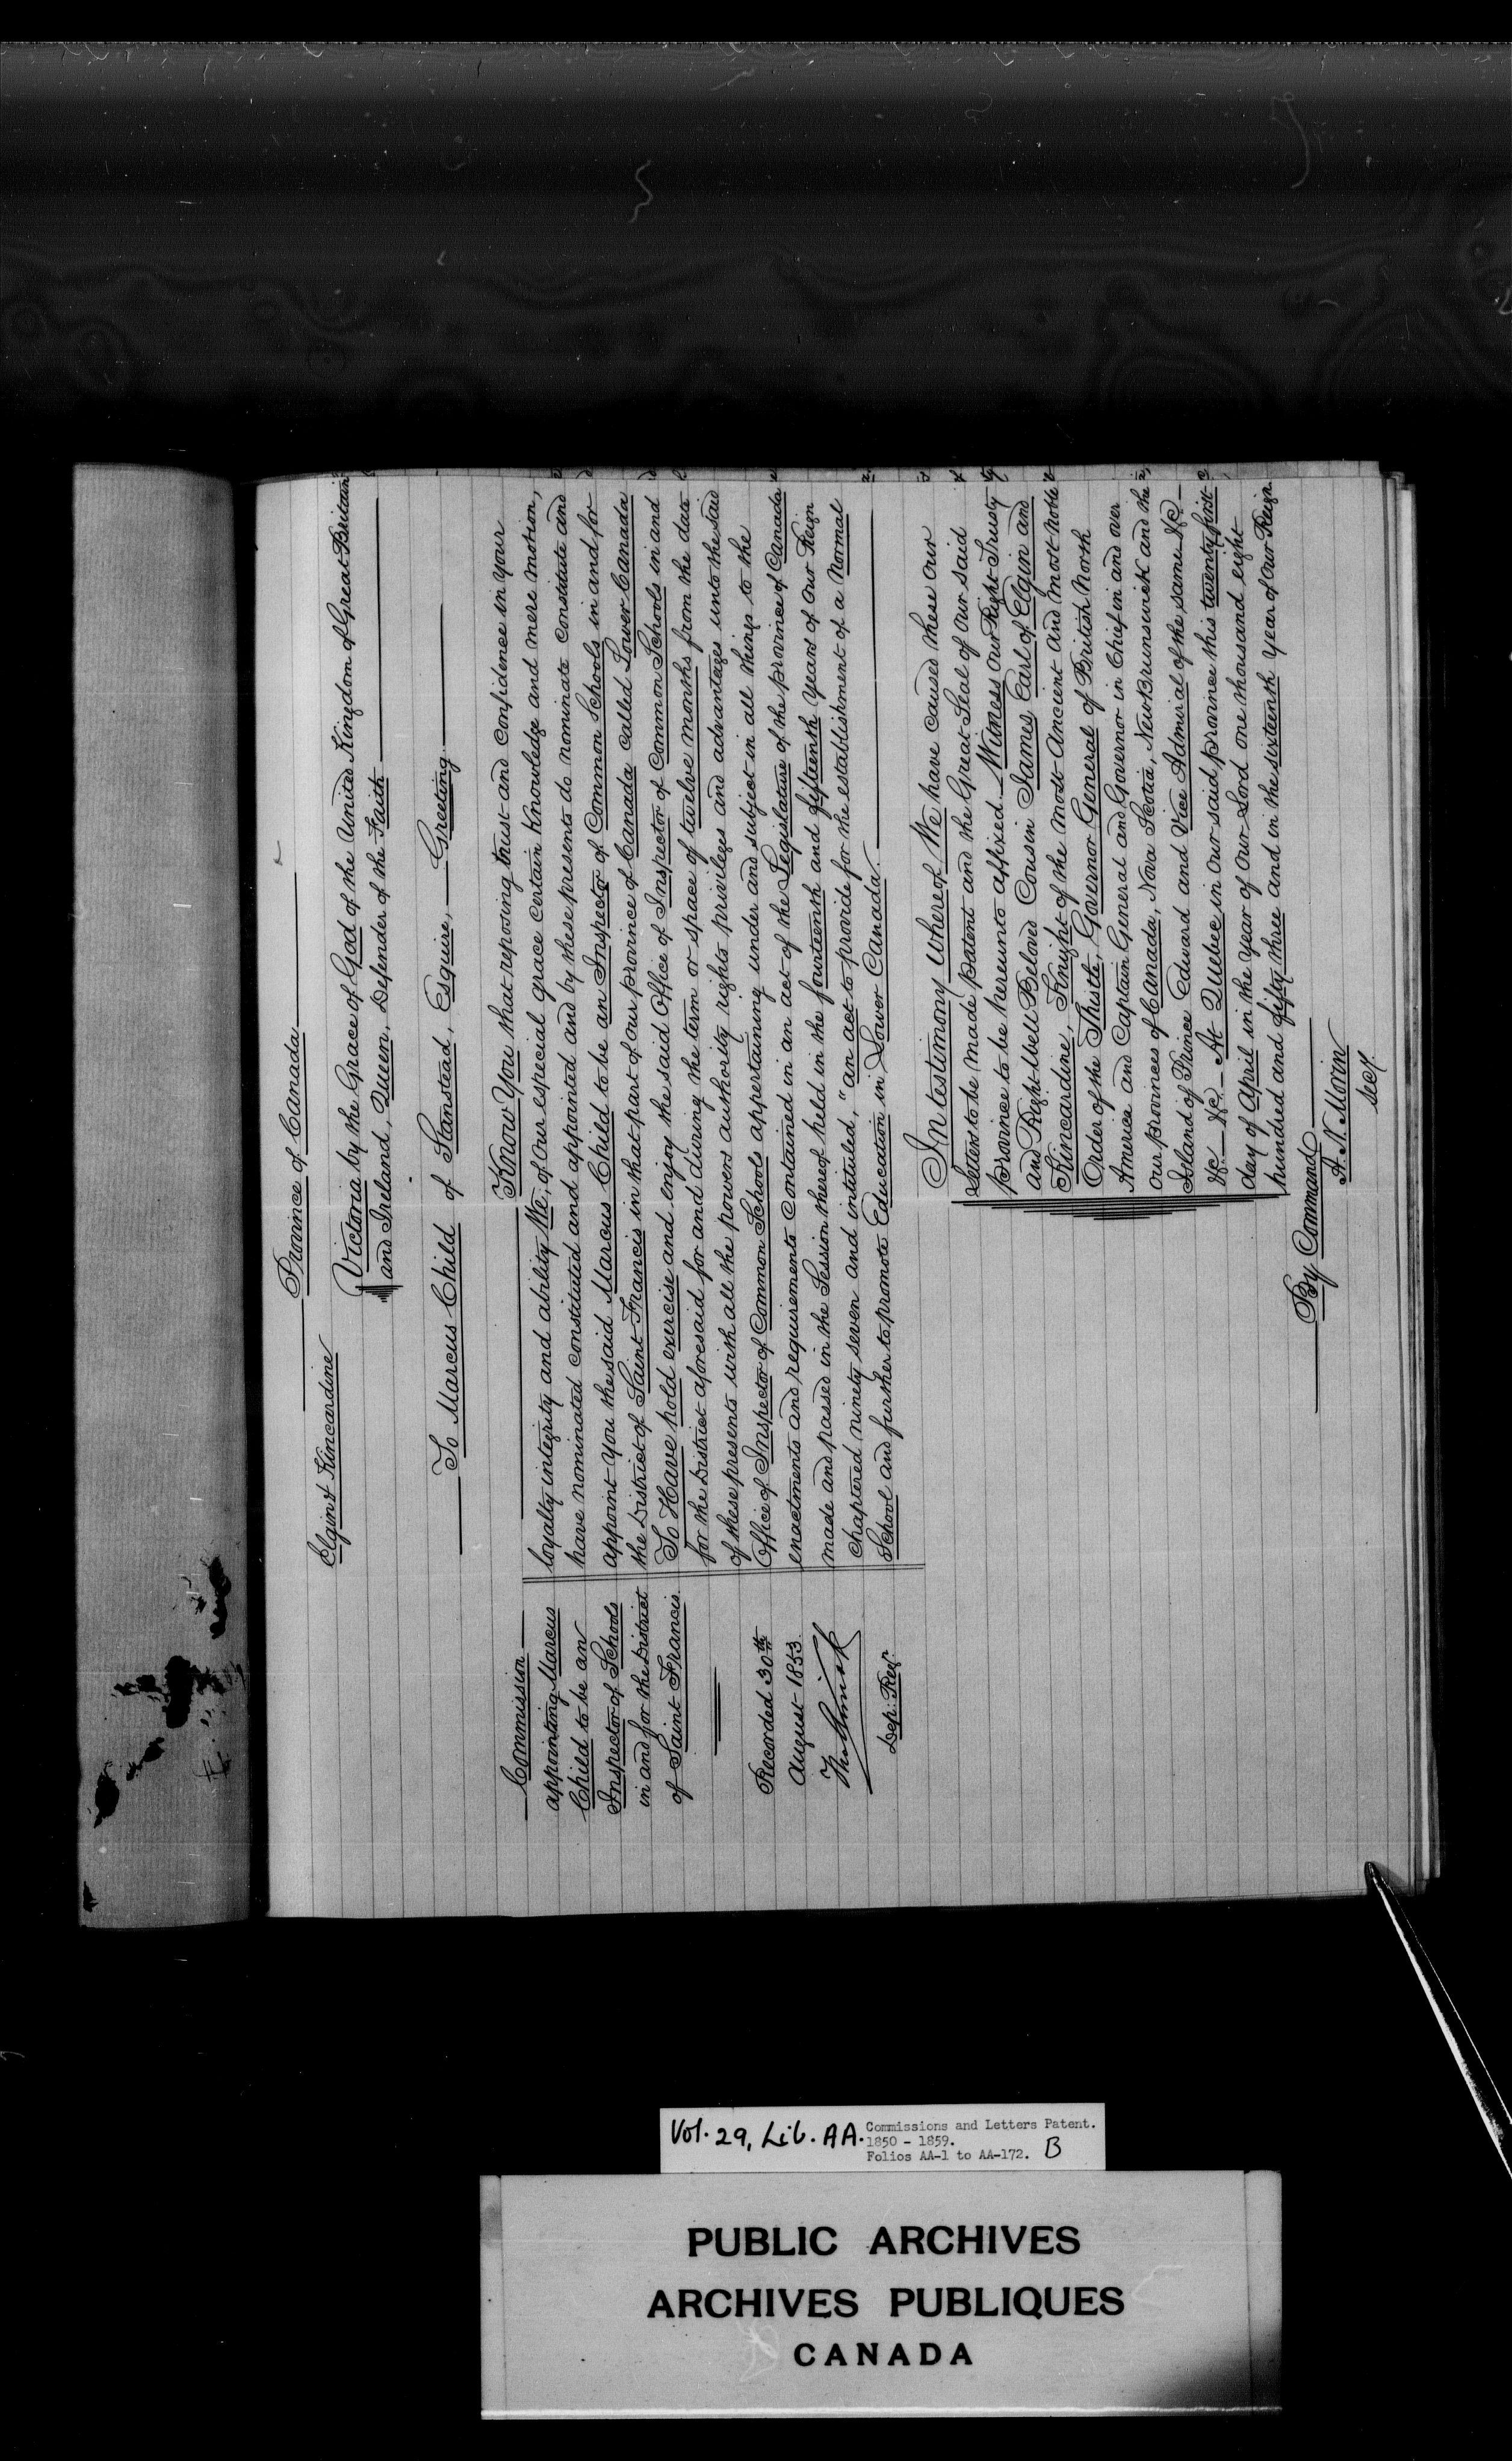 Province of Canada
Elgin & Kincardine
Victoria by the Grace of God of the United Kingdom of Great Britain
and Ireland, Queen, Defender of the Faith
To Marcus Child of Stanstead, Esquire, Greeting
Know You that reposing trust and confidence in your
loyalty integrity and ability We, of Our especial grace certain knowledge and mere motion,
have nominated constituted and appointed and by these presents do nominate constitute and
appoint You the said Marcus Child to be an Inspector of Common Schools in and for
the District of Saint Francis in that part of our province of Canada called Lower Canada
To Have hold exercise and enjoy the said Office of Inspector of Common Schools in and
for the District aforesaid for and during the term or space of twelve months from the date
of these presents with all the powers authority rights privileges and advantages unto the said
Office of Inspector of Common Schools appertaining under and subject in all things to the
enactments and requirements contained in an act of the Legislature of the province of Canada
made and passed in the Session thereof held in the fourteenth and fifteenth Years of Our Reign
chaptered ninety seven and intituled, "an act to provide for the establishment of a Normal
School and further to promote Education in Lower Canada.
Commission
appointing Marcus
Child to be an
Inspector of Schools
in and for the District
of Saint Francis.
Recorded 30th
August 1853.
Dep: Regr.
In testimony Whereof We have caused these Our
Letters to be made patent and the Great Seal of Our said
province to be hereunto affixed. Witness Our Right Trusty
and Right Well Beloved Cousin James Earl of Elgin and
Kincardine, Knight of the Most Ancient and Most Noble
Order of the Thistle, Governor General of British North
America and Captain General and Governor in Chief in and over
Our provinces of Canada, Nova Scotia, New Brunswick and the
Island of Prince Edward and Vice Admiral of the same &c
&c &c At Quebec in Our said province this twenty first
day of April in the Year of Our Lord one thousand eight
hundred and fifty three and in the sixteenth Year of Our Reign.
By Command
A. N. Morin
Secy.
Vol. 29, Lib. AA.
Commissions and Letters Patent.
1850 - 1859.
Folios AA-1 to AA-172. B
PUBLIC ARCHIVES
ARCHIVES PUBLIQUES
CANADA